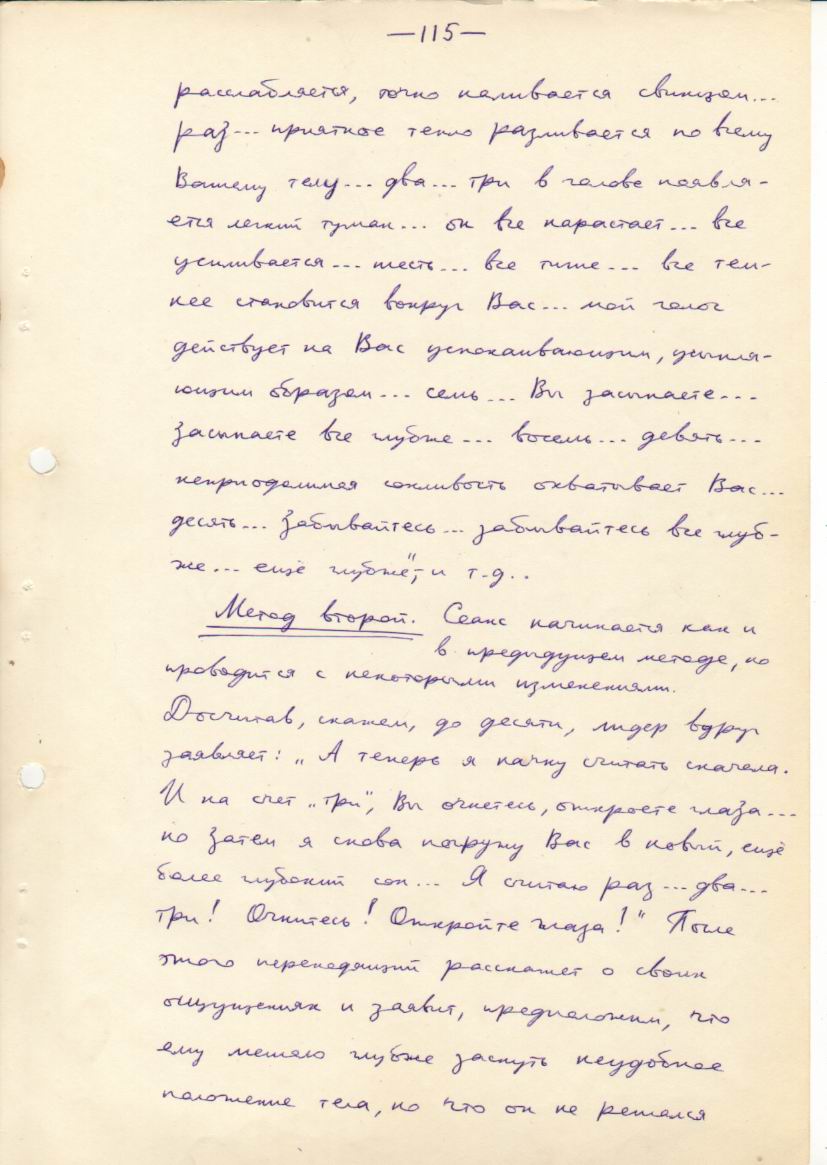 —115—
расслабляется, точно наливается свинцом...
раз... приятное тепло разливается по всему
Вашему телу... два... три в голове появля-
ется легкий туман... он все нарастает... все
усиливается... шесть... все тише... все тем-
нее становится вокруг Вас... мой голос
действует на Вас успокаивающим, усыпля-
ющим образом... семь... Вы засыпаете...
засыпаете все глубже... восемь... девять...
непреодолимая сонливость охватывает Вас...
десять... Забывайтесь... забывайтесь все глуб-
же... ещё глубже", и т.д..
Метод второй. Сеанс начинается как и
в предыдущем методе, но
проводится с некоторыми изменениями.
Досчитав, скажем, до десяти, лидер вдруг
заявляет: „А теперь я начну считать сначала.
И на счет „три", Вы очнетесь, откроете глаза...
но затем я снова погружу Вас в новый, ещё
более глубокий сон... Я считаю раз... два...
три! Очнитесь! Откройте глаза!" После
этого переходящий расскажет о своих
ощущениях и заявит, предположим, что
ему мешало глубже заснуть неудобное
положение тела, но что он не решался